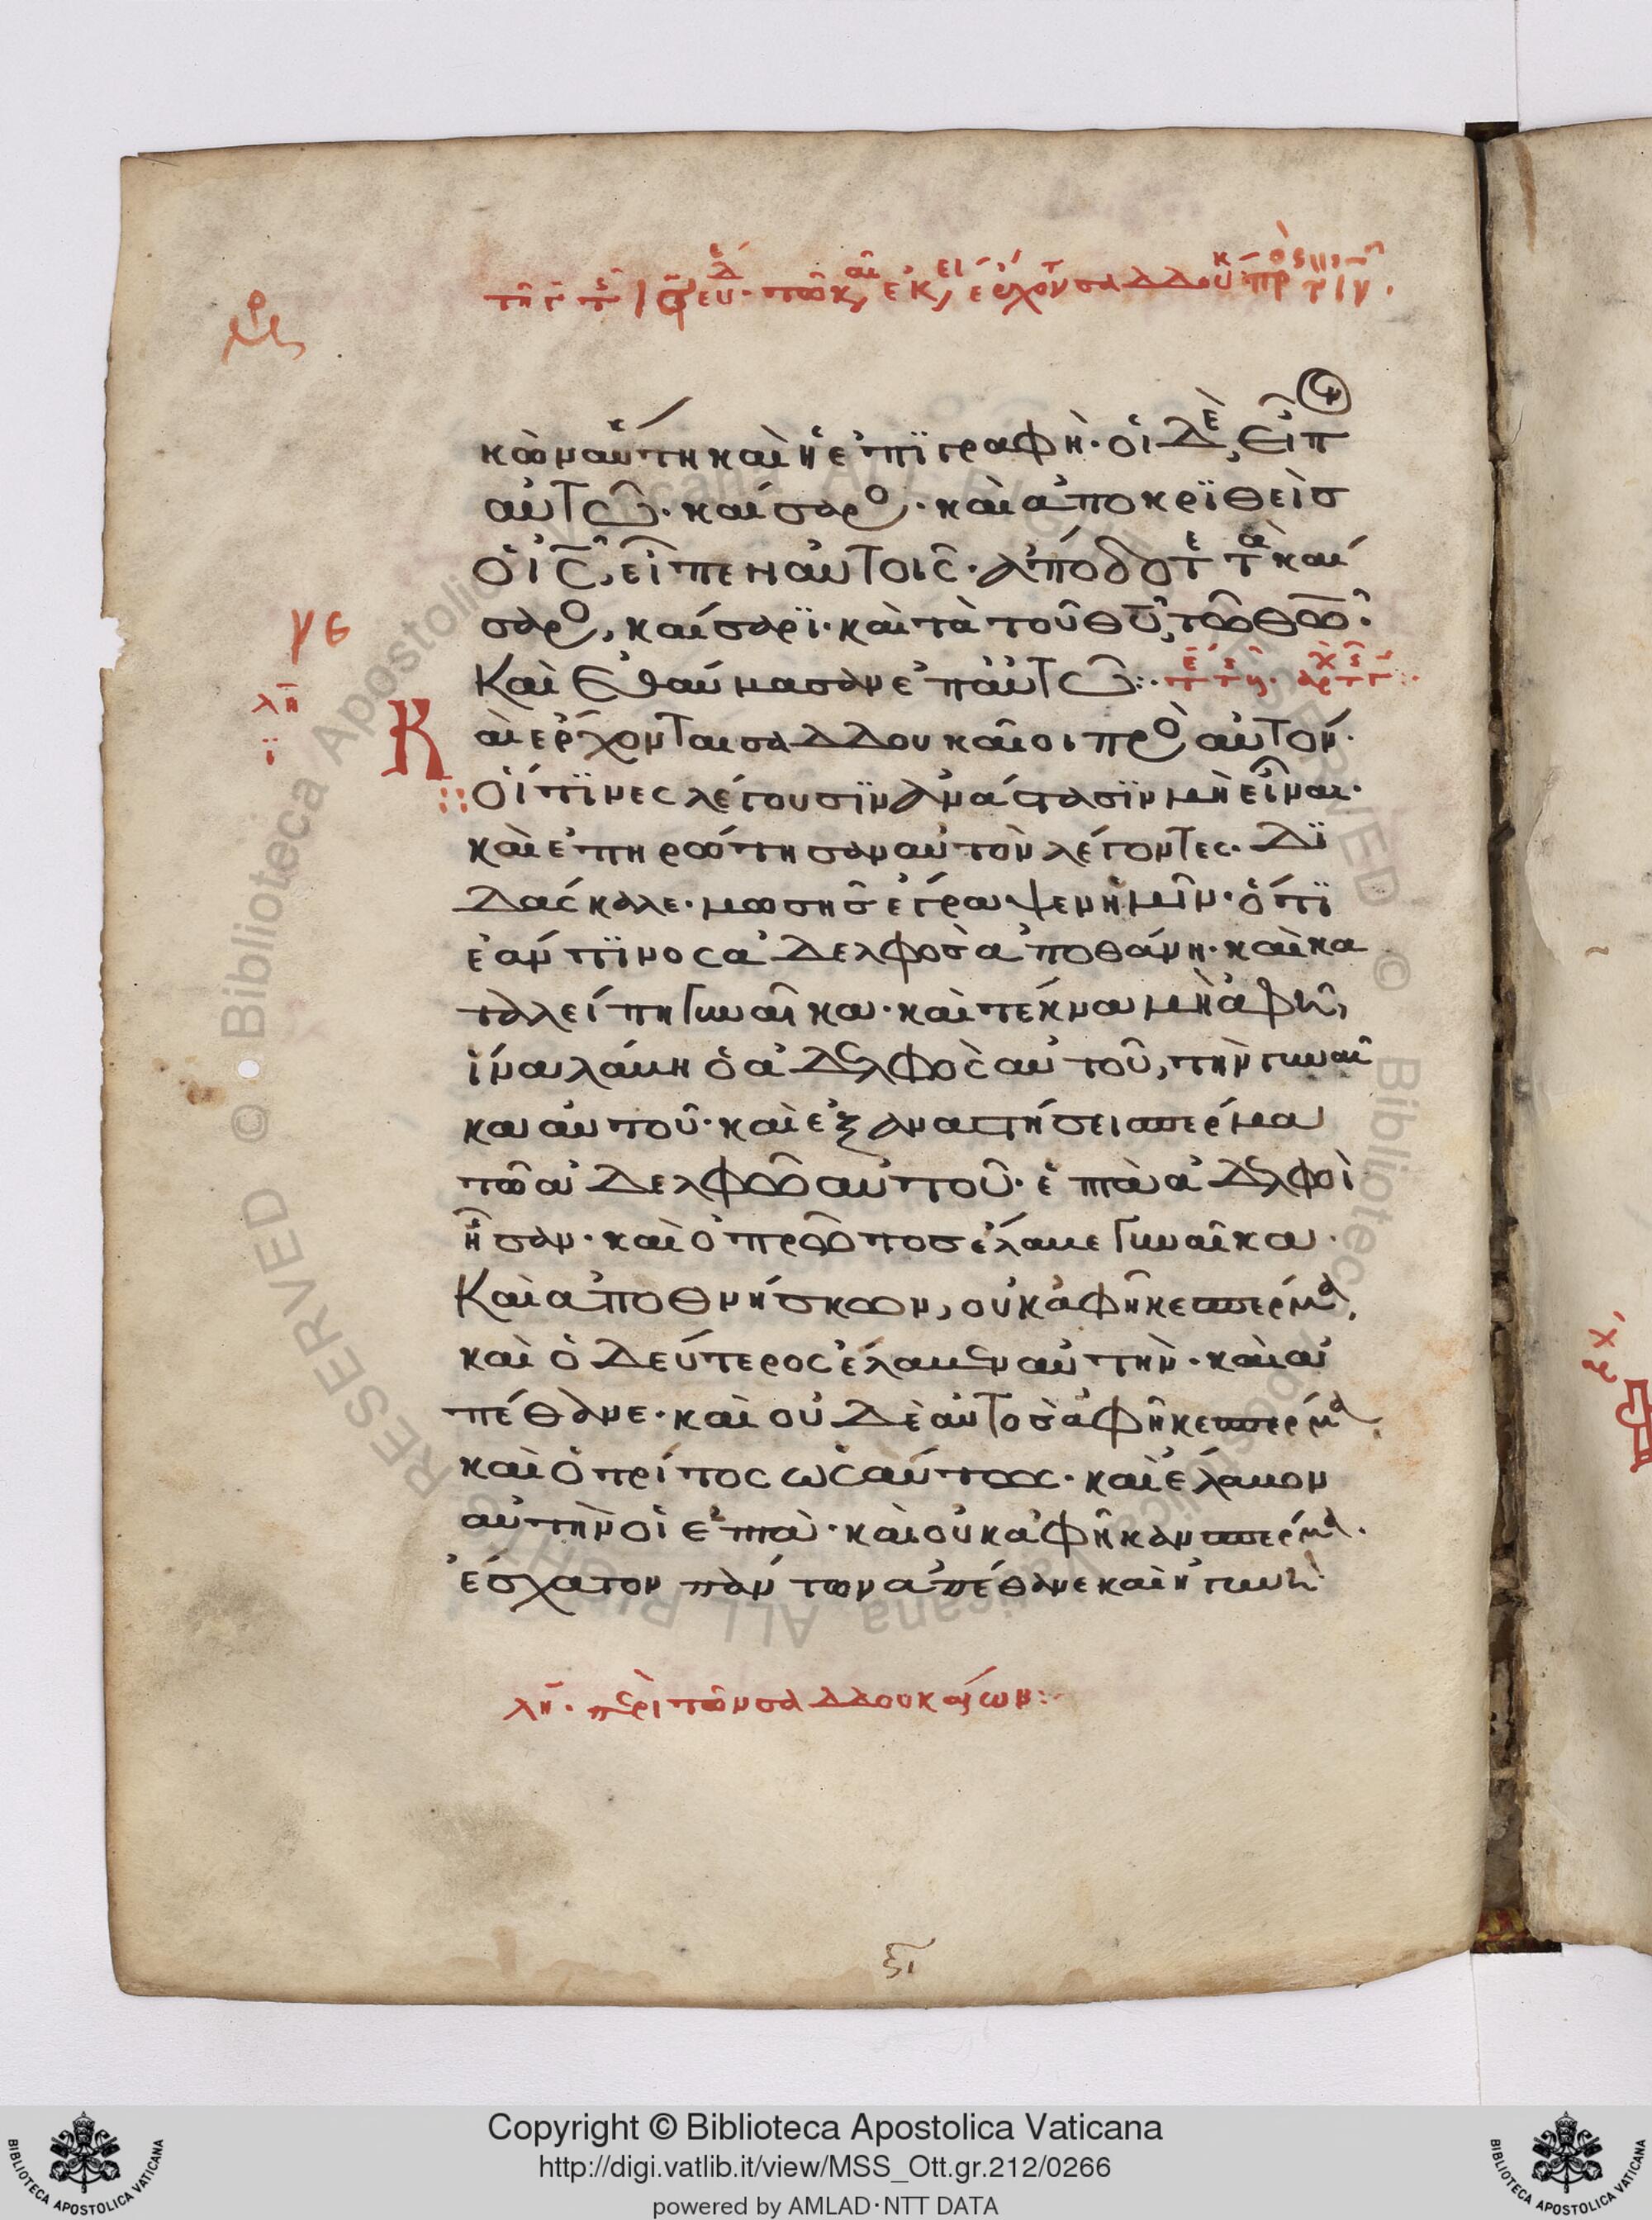 κὼν αὕτη καὶ ἡ ἐπϊγραφὴ· οἱ δὲ, εἶπ
αὐτῶ· καίσαρο· καὶ ἀποκρϊθεὶσ
ὁ ισ, εἶπεν αὐτοῖς· ἀπόδοτε τὰ καί
σαρο, καίσαρϊ· καὶ τὰ τοῦ θυ, τῶ θῶ·
Καὶ ἐθαύμασαν ἐπ αὐτῶ:·
γε
λη
ϊ
Καὶ ἔρχονται σαδδουκαῖοι προ αὐτόν·
οἵτϊνες λέγουσϊν ἀνάστασϊν μὴ εἶναι·
καὶ ἐπηρώτησαν αὐτὸν λέγοντες· Δϊ
δάσκαλε· μωσησ ἔγραψεν ἡμῖν· ὅτϊ
ἐάν τϊνος ἀδελφὸσ ἀποθάνη· καὶ κα
ταλείπη γυναῖκα· καὶ τέκνα μὴ ἀφῆ,
ἵνα λάβη ὁ ἀδελφὸς αὐτοῦ, τὴν γυναῖ
κα αὐτοῦ· καὶ ἐξαναστήσει σπέρμα
τῶ ἀδελφῶ αὐτοῦ· ἑπτὰ ἀδελφοὶ
ἦσαν· καὶ ὁ πρῶτοσ ἔλαβε γυναῖκα·
Καὶ ἀποθνήσκων, οὐκ ἀφῆκε σπέρμα.
καὶ ὁ δεύτερος ἔλαβεν αὐτὴν· καὶ ἀ
πέθανε· καὶ οὐδὲ αὐτὸσ ἀφῆκε σπέρμα.
καὶ ὁ τρίτος ὡσαύτως· καὶ ἔλαβον
αὐτὴν οἱ ἑπτὰ· καὶ οὐκ ἀφῆκαν σπέρμα.
ἐσχατον πάντων ἀπέθανε καὶ ἡ γυνὴ·
λη· περὶ τῶν σαδδουκαίων:
Copyright © Biblioteca Apostolica Vaticana
http://digi.vatlib.it/view/MSS_Ott.gr.212/0266
powered by AMLAD·NTT DATA
BIBLIOTECA APOSTOLICA VATICANA
BIBLIOTECA APOSTOLICA VATICANA